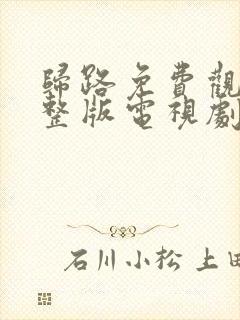 歸路免費觀
整版電視劇
石川小松 上田